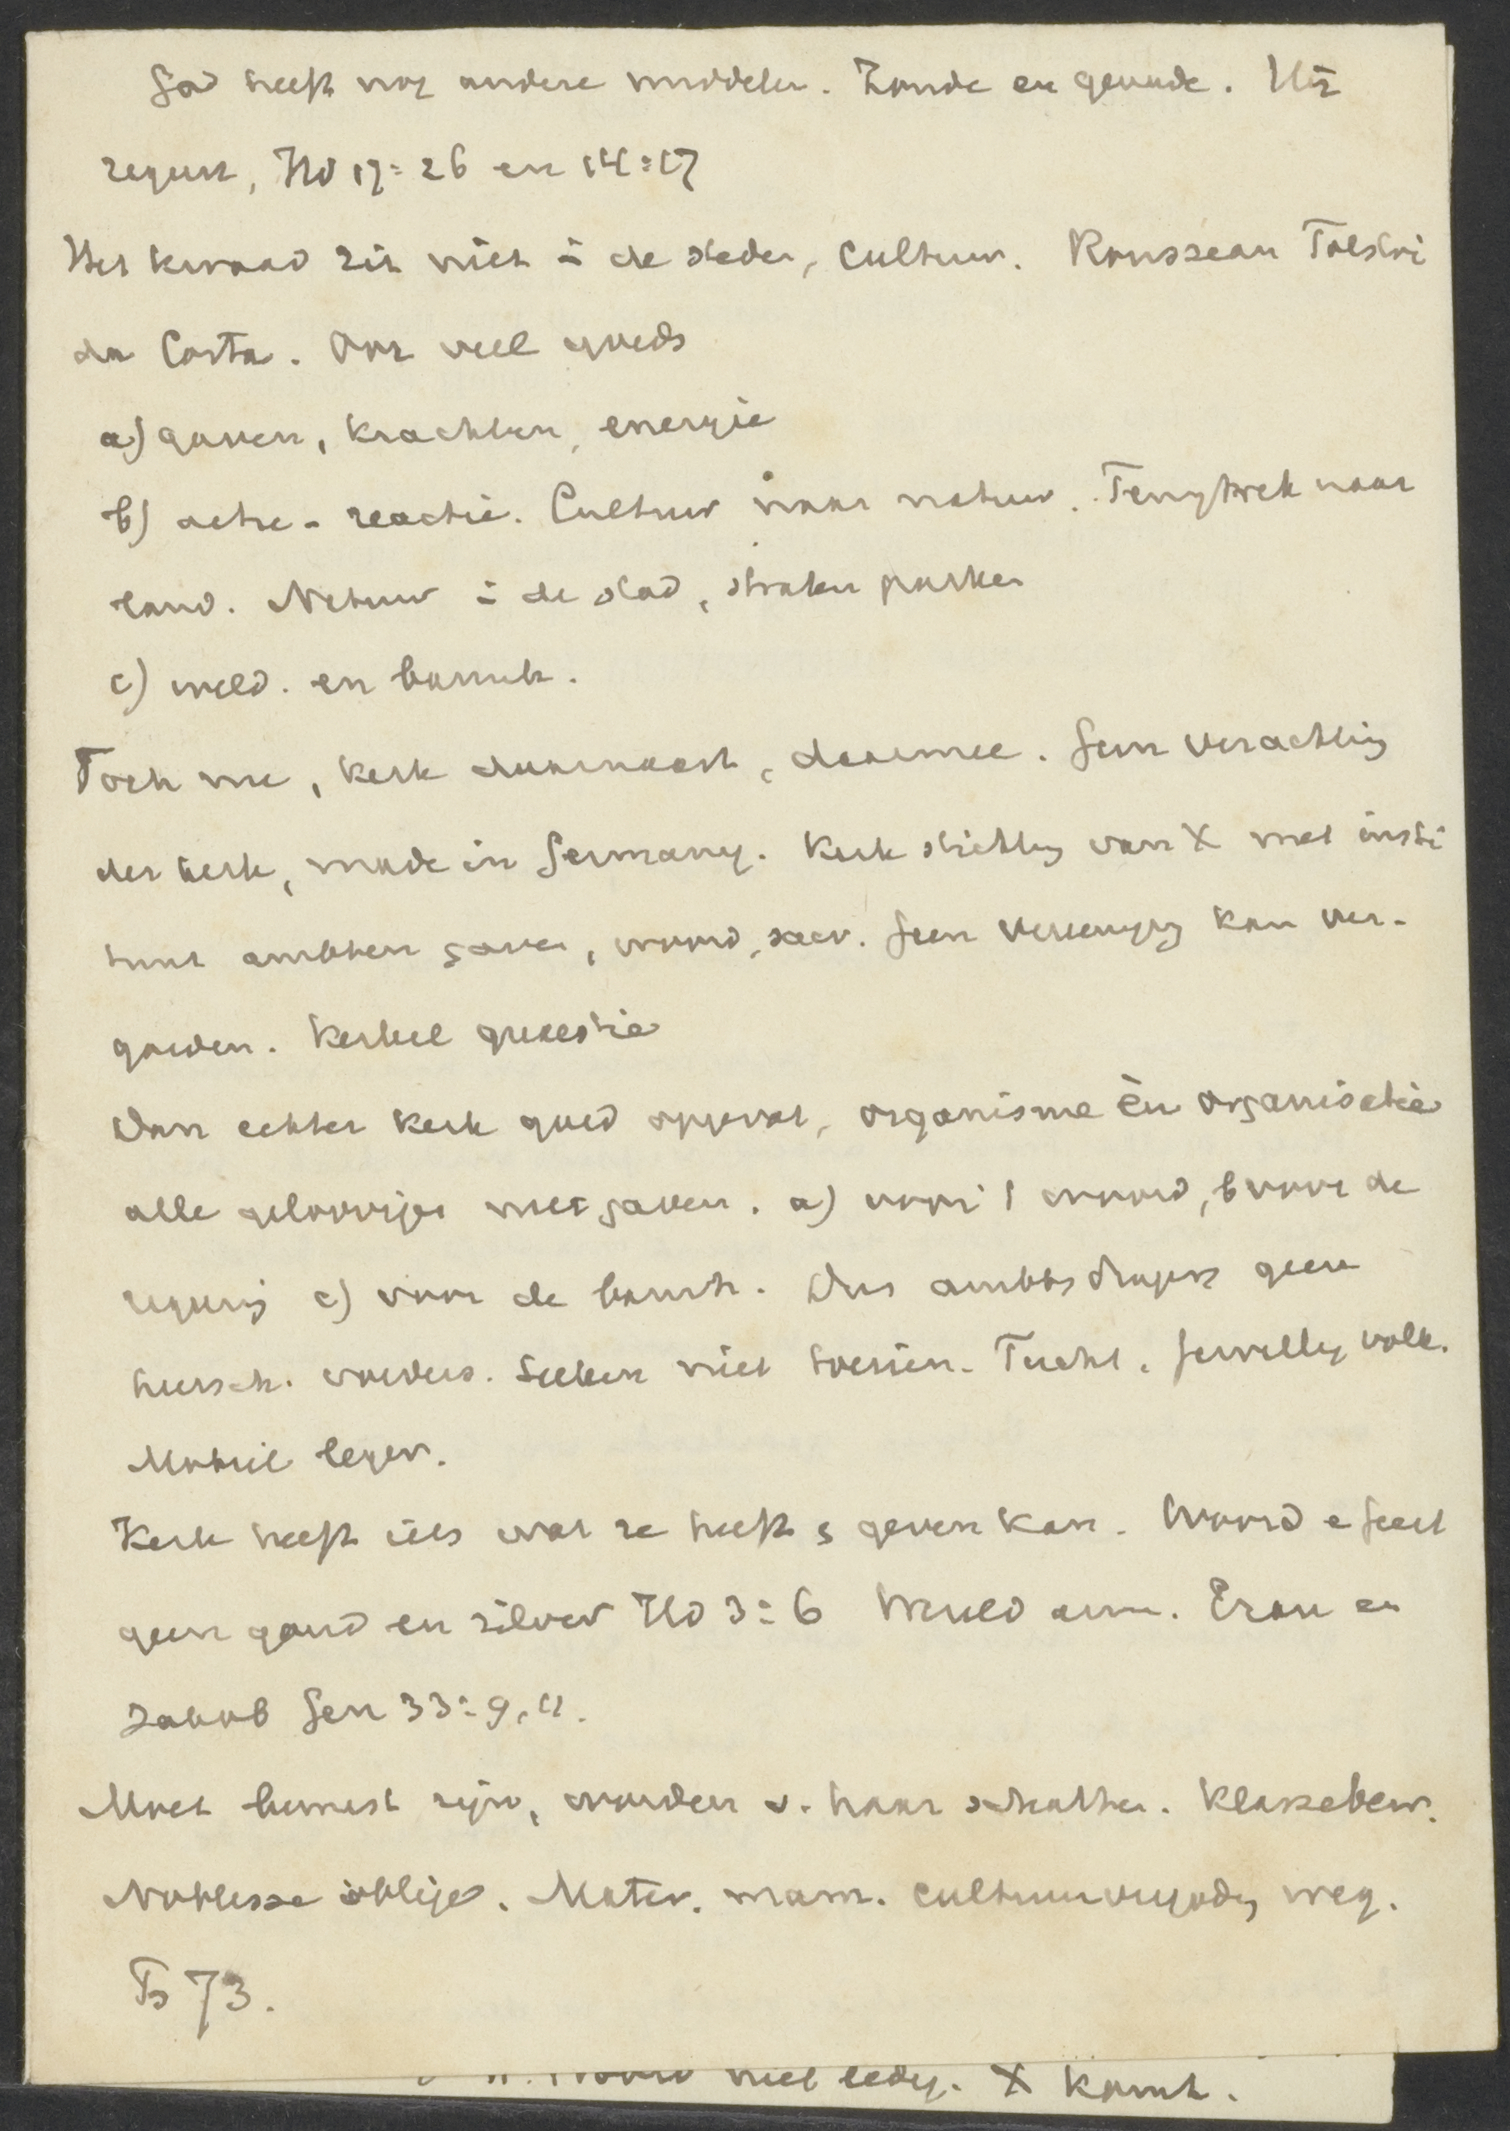 God heeft nog andere middelen. Zonde en genade. Hij
regeert, Hd 17:26 en 14:17
Het kwaad zit niet i de steden, cultuur. Rousseau Tolstoi
da Costa. Oor veel goeds
a) gaven, krachten, energie
b) actie - reactie. Cultuur naar natuur. Terugtrek naar
land. Natuur i de stad, straten parken
c) weld. en barmh.
Toch me, kerk daarnaast, daarmee. Geen verachting
der kerk, made in Germany. Kerk stichting van X met insti
tuut ambten gaven, woord, sacr. Geen vereeniging kan ver-
goeden. Kerkel quaestie
Dan echter kerk goed opgevat, organisme èn organisatie
alle geloovigen met gaven. a) voor 't woord, b voor de
regering c) voor de barmh. Dus ambtsdragers geen
heersch. voeders. Seelen niet tresien. Tucht. Gewillig volk.
Mobiel leger.
Kerk heeft iets wat ze heeft & geven kan. Woord e Geest
geen goud en zilver Hd 3:6 Wereld arm. Ezau en
Jakob Gen 33:9, 11.
Moet bewust zijn, worden v. haar schatten. Klassebew.
Noblesse oblige. Mater. mam. cultuurvergoding weg.
Ps 73.
niet ledig. X komt.